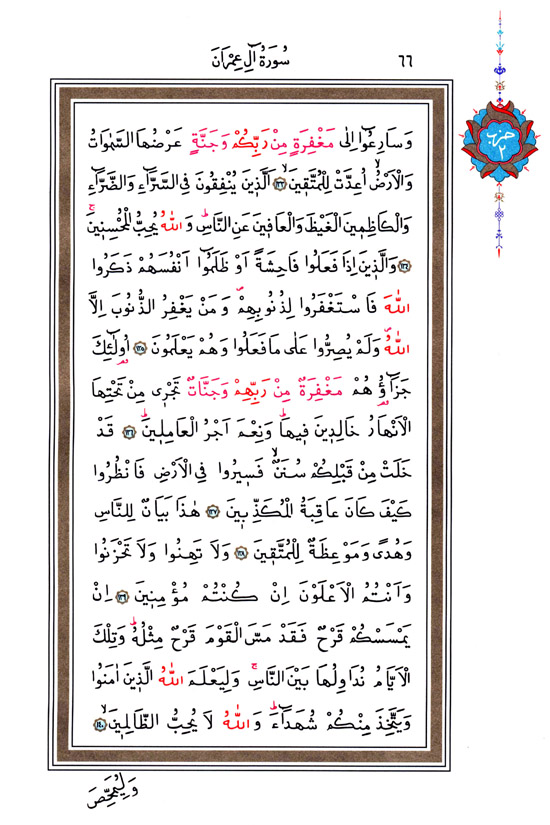 ٦٦
سُورَةُ اٰلِ عِمْرَانَ
حزب
٢
وَسَارِعُٓوا اِلٰى مَغْفِرَةٍ مِنْ رَبِّكُمْ وَجَنَّةٍ عَرْضُهَا السَّمٰوَاتُ
وَالْاَرْضُۙ اُعِدَّتْ لِلْمُتَّق۪ينَۙ ﴿١٣٣﴾ اَلَّذ۪ينَ يُنْفِقُونَ فِي السَّرَّٓاءِ وَالضَّرَّٓاءِ
وَالْكَاظِم۪ينَ الْغَيْظَ وَالْعَاف۪ينَ عَنِ النَّاسِۜ وَاللّٰهُ يُحِبُّ الْمُحْسِن۪ينَۚ
﴿١٣٤﴾ وَالَّذ۪ينَ اِذَا فَعَلُوا فَاحِشَةً اَوْ ظَلَمُٓوا اَنْفُسَهُمْ ذَكَرُوا
اللّٰهَ فَاسْتَغْفَرُوا لِذُنُوبِهِمْۖ وَمَنْ يَغْفِرُ الذُّنُوبَ اِلَّا
اللّٰهُۖ وَلَمْ يُصِرُّوا عَلٰى مَا فَعَلُوا وَهُمْ يَعْلَمُونَ ﴿١٣٥﴾ اُو۬لٰٓئِكَ
جَزَٓاؤُ۬هُمْ مَغْفِرَةٌ مِنْ رَبِّهِمْ وَجَنَّاتٌ تَجْر۪ي مِنْ تَحْتِهَا
الْاَنْهَارُ خَالِد۪ينَ ف۪يهَاۜ وَنِعْمَ اَجْرُ الْعَامِل۪ينَۜ ﴿١٣٦﴾ قَدْ
خَلَتْ مِنْ قَبْلِكُمْ سُنَنٌۙ فَس۪يرُوا فِي الْاَرْضِ فَانْظُرُوا
كَيْفَ كَانَ عَاقِبَةُ الْمُكَذِّب۪ينَ ﴿١٣٧﴾ هٰذَا بَيَانٌ لِلنَّاسِ
وَهُدًى وَمَوْعِظَةٌ لِلْمُتَّق۪ينَ ﴿١٣٨﴾ وَلَا تَهِنُوا وَلَا تَحْزَنُوا
وَاَنْتُمُ الْاَعْلَوْنَ اِنْ كُنْتُمْ مُؤْمِن۪ينَ ﴿١٣٩﴾ اِنْ
يَمْسَسْكُمْ قَرْحٌ فَقَدْ مَسَّ الْقَوْمَ قَرْحٌ مِثْلُهُۜ وَتِلْكَ
الْاَيَّامُ نُدَاوِلُهَا بَيْنَ النَّاسِۚ وَلِيَعْلَمَ اللّٰهُ الَّذ۪ينَ اٰمَنُوا
وَيَتَّخِذَ مِنْكُمْ شُهَدَٓاءَۜ وَاللّٰهُ لَا يُحِبُّ الظَّالِم۪ينَۙ ﴿١٤٠﴾
وَلِيُمَحِّصَ